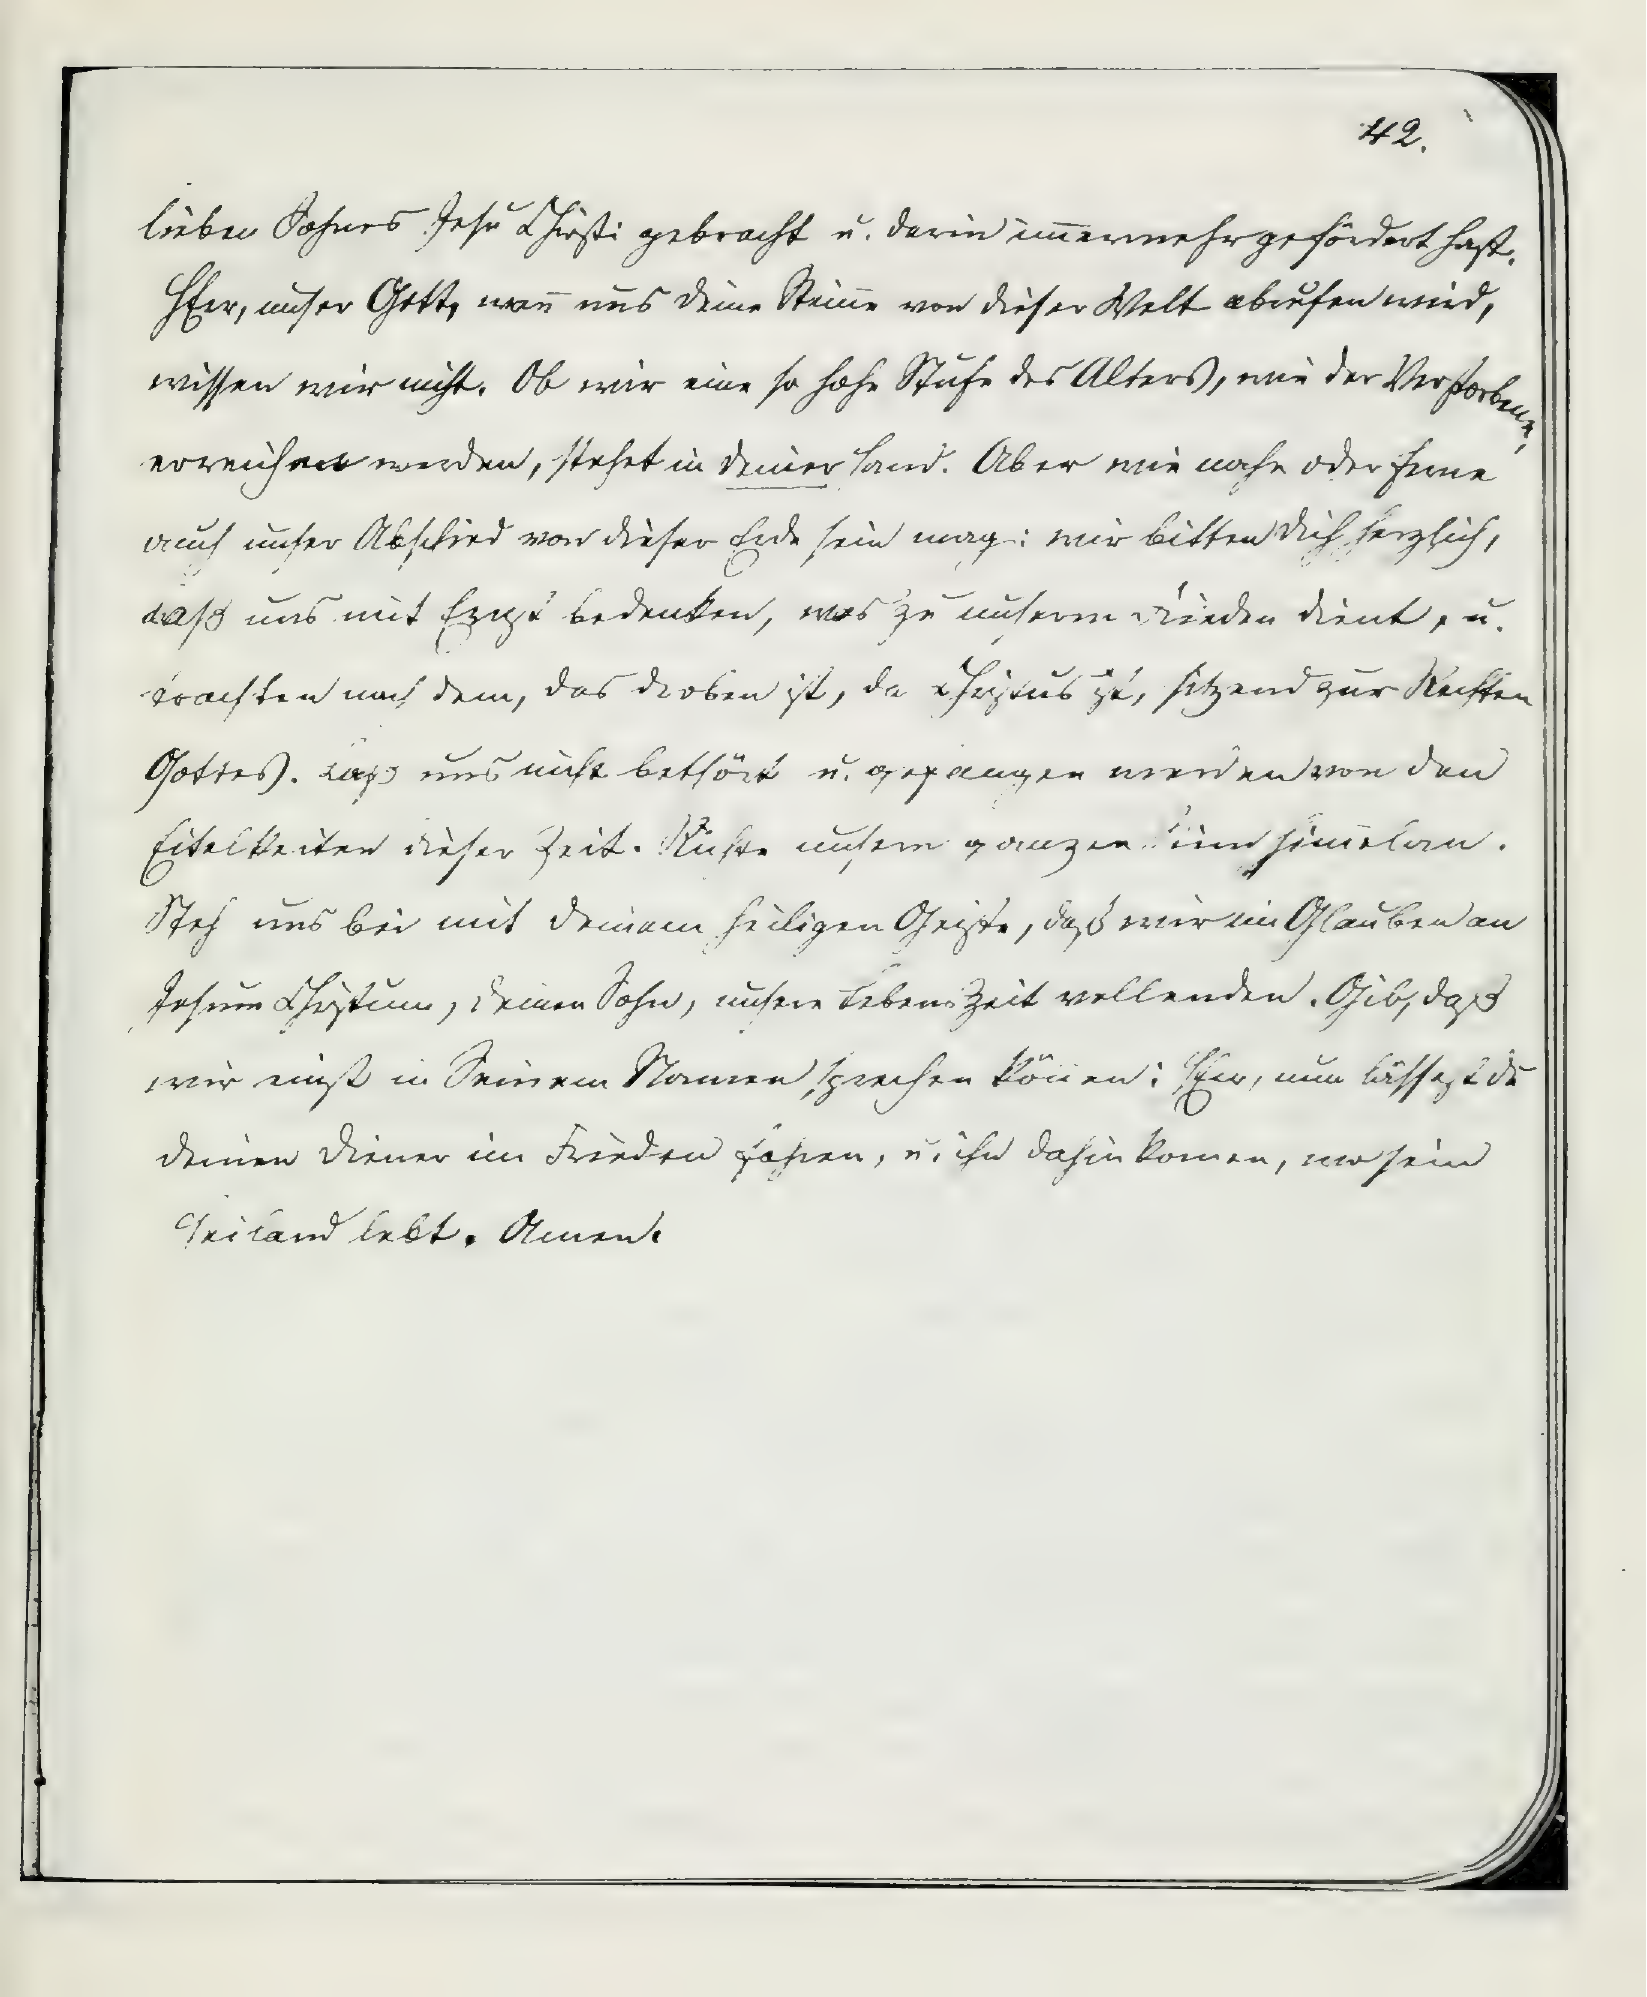 42.
lieben Sohnes Jesu Christi gebracht u. darin im̄ermehr gefördert hast.
HErr, unser Gott, wan̄ uns deine Stim̄e von dieser Welt abrufen wird,
wissen wir nicht. Ob wir eine so hohe Stufe des Alters, wie der Verstorbene,
erreichen werden, stehet in deiner Hand. Aber wie nahe oder ferne
auch unser Abschied von dieser Erde sein mag: wir bitten dich herzlich,
laß uns mit Ernst bedenken, was zu unserm Frieden dient, u.
trachten nach dem, das droben ist, da Christus ist, sitzend zur Rechten
Gottes. Laß uns nicht bethört u. gefangen werden von den
Eitelkeiten dieser Zeit. Richte unsern ganzen Sinn him̄elan.
Steh uns bei mit deinem heiligen Geiste, daß wir im Glauben an
Jesum Christum, deinen Sohn, unsere Lebenszeit vollenden. Gib, daß
wir einst in Seinem Namen sprechen kön̄en: HErr, nun lässest du
deinen Diener im Frieden fahren, u. ihn dahin kom̄en, wo sein
Heiland lebt. Amen.